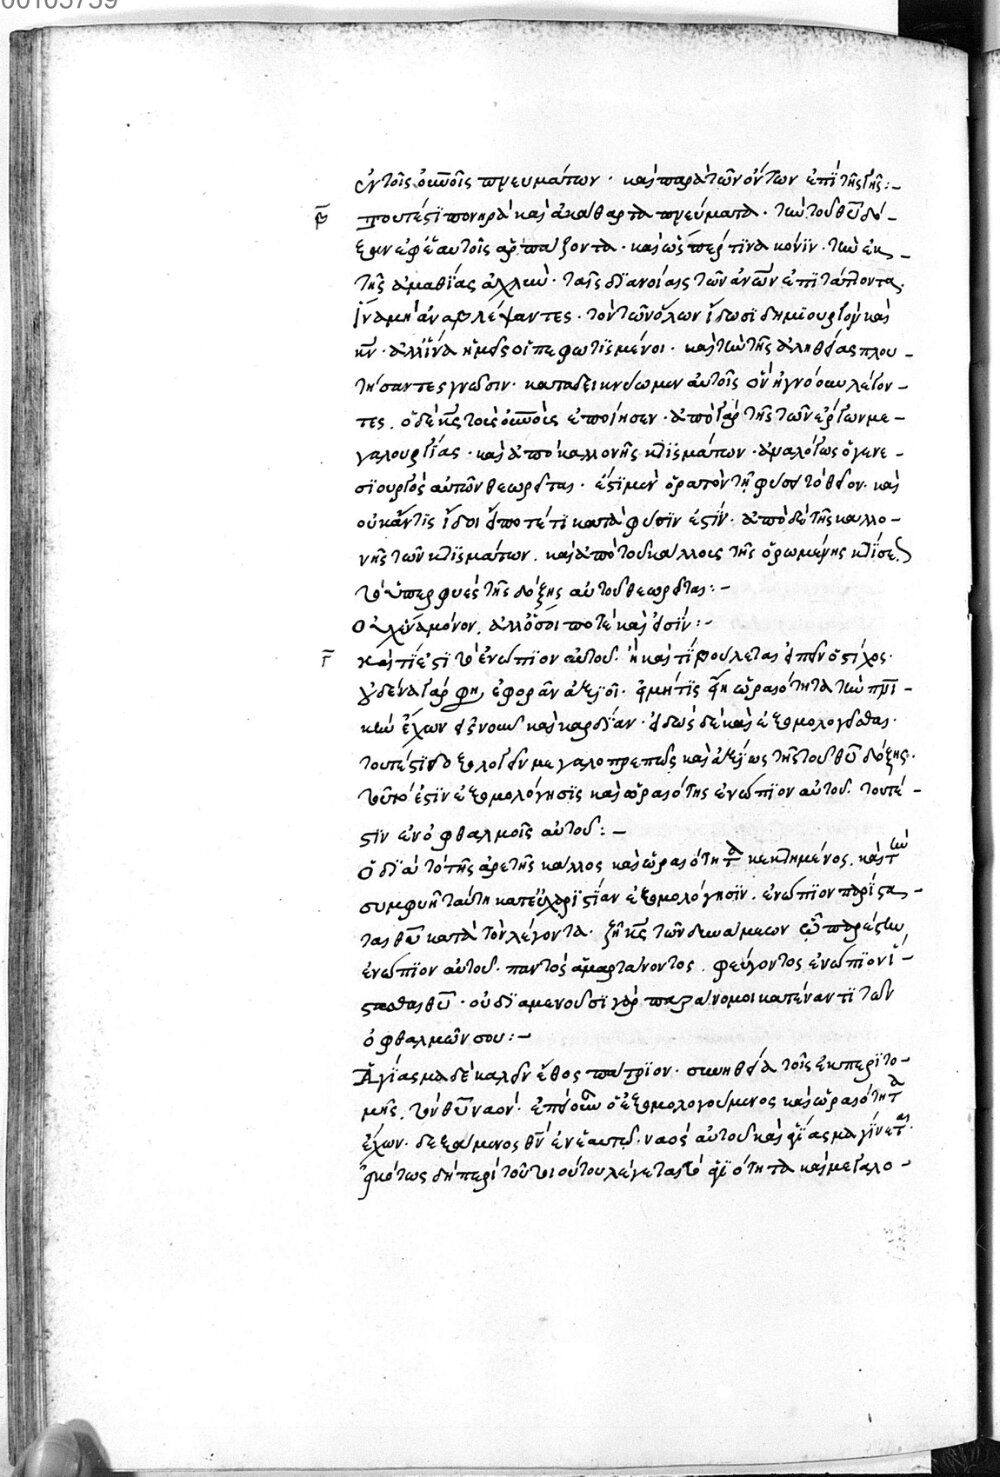 00103759
ἐν τοῖς οὐνοῖς πνευμάτων · καὶ παρὰ τῶν ὄντων ἐπὶ τῆς γῆς :-
β τουτέστι πονηρὰ καὶ ἀκάθαρτα πνεύματα · τὴν τοῦ θυ δό-
ξαν ἐφ' ἑαυτοῖς ἁρπάζοντα · καὶ ὥσπερ τινὰ κόνιν · τὴν ἐκ
τῆς ἀμαθίας ἀχλὺν · ταῖς διανοίαις τῶν ἀνων ἐπιτάττοντα.
ἵνα μὴ ἀναβλέψαντες · τὸν τῶν ὅλων ἴδωσι δημιουργὸν καὶ
κν · ἀλλ' ἵνα ἡμεῖς οἱ πεφωτισμένοι · καὶ τὴν τῆς ἀληθείας πλου-
τήσαντες γνῶσιν · καταδεικνύωμεν αὐτοῖς ὃν ἠγνόουν λέγον-
τες · ὁ δὲ κς τοὺς οὐνοὺς ἐποίησεν · ἀπὸ γὰρ τῆς τῶν ἔργων με-
γαλουργίας · καὶ ἀπὸ καλλονῆς κτισμάτων · ἀναλόγως ὁ γενε-
σιουργὸς αὐτῶν θεωρεῖται · ἔστι μὲν ἀόρατον τῇ φύσει τὸ θεῖον · καὶ
οὐκ ἄν τις ἴδοι τί ποτέ τι κατὰ φύσιν ἐστίν · ἀπὸ δὲ τῆς καλλο-
νῆς τῶν κτισμάτων · καὶ ἀπὸ τοῦ κάλλους τῆς ὁρωμένης κτίσεως
τὸ ὑπερφυὲς τῆς δόξης αὐτοῦ θεωρεῖται :-
μόνον · ἀλλ' ὅσοι ποτὲ καὶ εἰσίν :-
γ καὶ τί ἐστι τὸ ἐνώπιον αὐτοῦ · ἢ καὶ τί βούλεται εἰπεῖν ὁ στίχος ·
οὐδένα γὰρ φησὶ ἐφορᾶν ἀξιοῖ · εἰ μή τις εἴη ὡραιότητα τὴν πνι-
κὴν ἔχων εἰς νοῦν καὶ καρδίαν · εἰδὼς δὲ καὶ ἐξομολογεῖσθαι ·
τουτέστι δοξολογεῖν μεγαλοπρεπῶς καὶ ἀξίως τῆς τοῦ θυ δόξης ·
τοῦτο ἐστὶν ἐξομολόγησις καὶ ὡραιότης ἐνώπιον αὐτοῦ · τουτέ-
στιν ἐν ὀφθαλμοῖς αὐτοῦ :-
Ὁ διὰ τὸ τῆς ἀρετῆς κάλλος καὶ ὡραιότητα κεκτημένος · καὶ τὴν
συμφυῆ ταύτῃ κατ' εὐχαριστίαν ἐξομολόγησιν · ἐνώπιον παρίστα-
ται θυ κατὰ τὸν λέγοντα · ζῇ κς τῶν δυνάμεων ᾧ παρέστην
ἐνώπιον αὐτοῦ · παντὸς ἁμαρτάνοντος · φεύγοντος ἐνώπιον ἵ-
στασθαι θυ · οὐ διαμενοῦσι γὰρ παράνομοι κατέναντι τῶν
ὀφθαλμῶν σου :-
Ἁγίασμα δὲ καλεῖν ἔθος πάτριον · συνηθείᾳ τοῖς ἐκ περιτο-
μῆς · τὸν θυ ναόν · ἐπὶ ὁ ἐξομολογούμενος καὶ ὡραιότητα
ἔχων · δεξάμενος θν ἐν ἑαυτῷ · ναὸς αὐτοῦ καὶ ἁγίασμα γίνεται ·
εἰκότως δὴ περὶ τοῦ τοιούτου λέγεται τὸ ἁγιότητα καὶ μεγαλο-